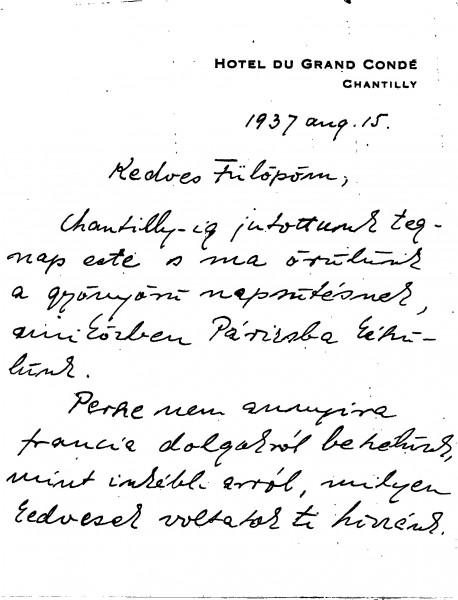 HOTEL DU GRAND CONDÉ
CHANTILLY
1937 aug. 15.
Kedves Fülöpöm,
Chantilly-ig jutottunk teg-
nap este s ma örülünk
a gyönyörü napsütésnek,
amiközben Párizsba készü-
lünk.
Persze nem annyira
francia dolgokról beszélünk,
mint inkább arról, milyen
kedvesek voltatok ti hozzánk.